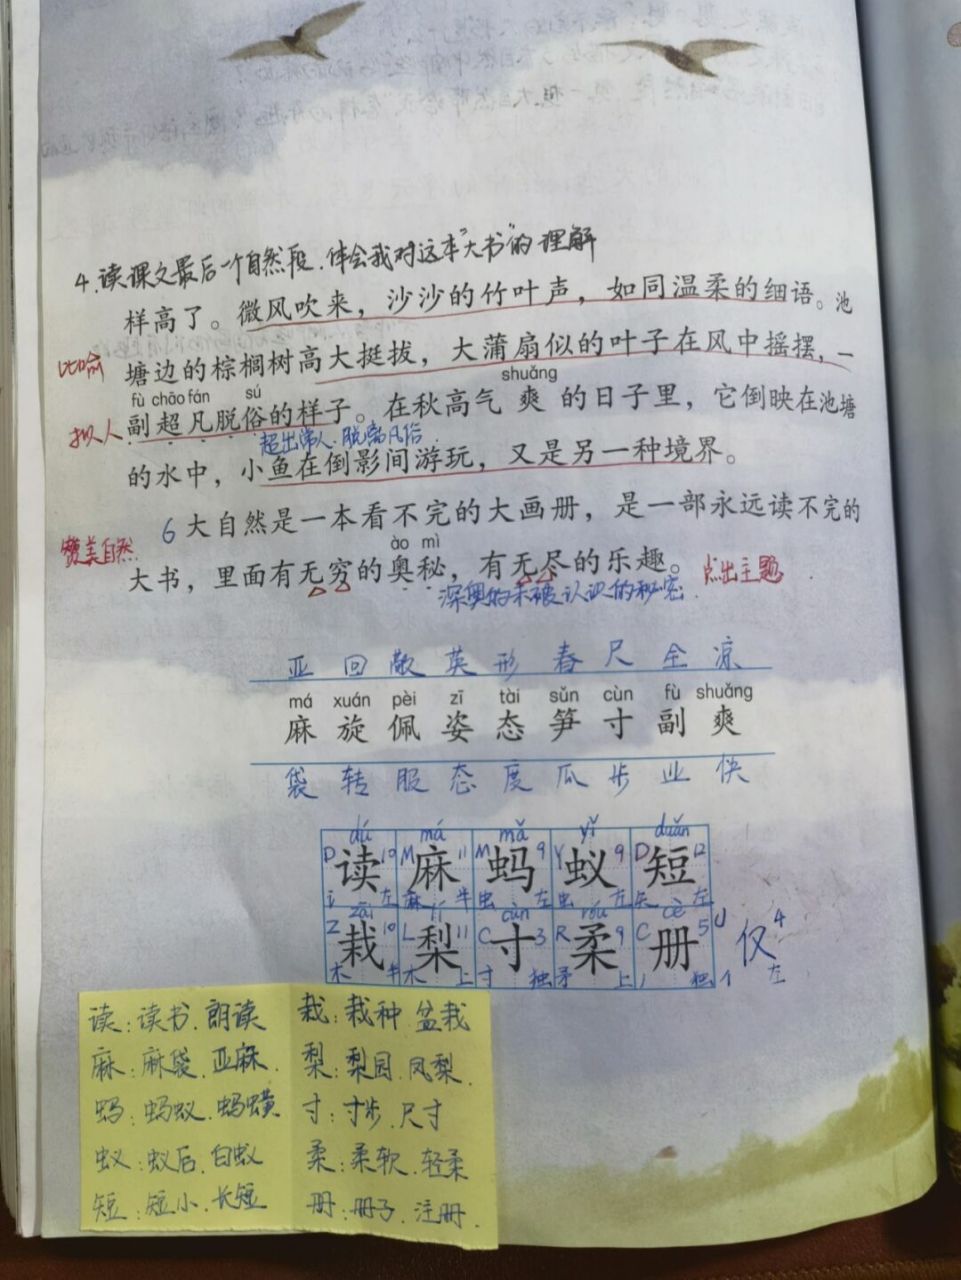 4.读课文最后一个自然段.体会我对这本"大书"的理解
样高了。微风吹来，沙沙的竹叶声，如同温柔的细语。池
比喻
塘边的棕榈树高大挺拔，大蒲扇似的叶子在风中摇摆，一
fù chāo fán sú shuǎng
拟人
副超凡脱俗的样子。在秋高气爽的日子里，它倒映在池塘
超出常人.脱离凡俗.
的水中，小鱼在倒影间游玩，又是另一种境界。
6 大自然是一本看不完的大画册，是一部永远读不完的
赞美自然
ào mì
大书，里面有无穷的奥秘，有无尽的乐趣。
点出主题
深奥的未被认识的秘密.
亚 回 敬 英 形 春 尺 全 凉
má xuán pèi zī tài sǔn cùn fù shuǎng
麻 旋 佩 姿 态 笋 寸 副 爽
袋 转 服 态 度 瓜 步 业 快
dú má mǎ yǐ duǎn
D 10 M 11 M 9 Y 9 D 12
读 麻 蚂 蚁 短
讠 左 麻 半 虫 左 虫 左 矢 左
zāi lí cùn róu cè
Z 10 L 11 C 3 R 9 C 5 J 4
栽 梨 寸 柔 册 仅
木 半 木 上 寸 独 矛 上 丿 独 亻 左
读:读书.朗读 栽:栽种.盆栽
麻:麻袋.亚麻. 梨:梨园.凤梨.
蚂:蚂蚁.蚂蟥 寸:寸步.尺寸
蚁:蚁后.白蚁 柔:柔软.轻柔
短:短小.长短 册:册子.注册.